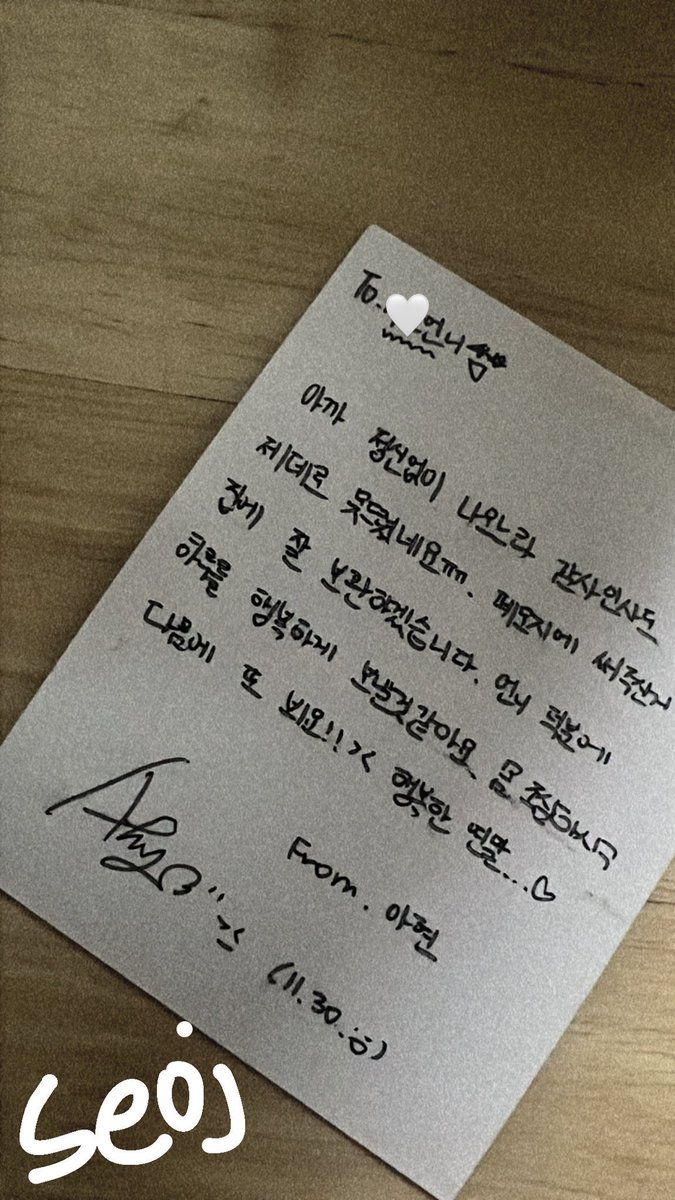 To. 언니
아까 정신없이 나오느라 감사인사도
제대로 못드렸네요ㅠㅠ. 메모지에 써주신거
집에 잘 보관하겠습니다. 언니 덕분에
하루를 행복하게 보낼것같아요 몸 조심하시구
다음에 또 봬요!! >< 행복한 연말...♡
From. 아현
(11.30. :)
seoj